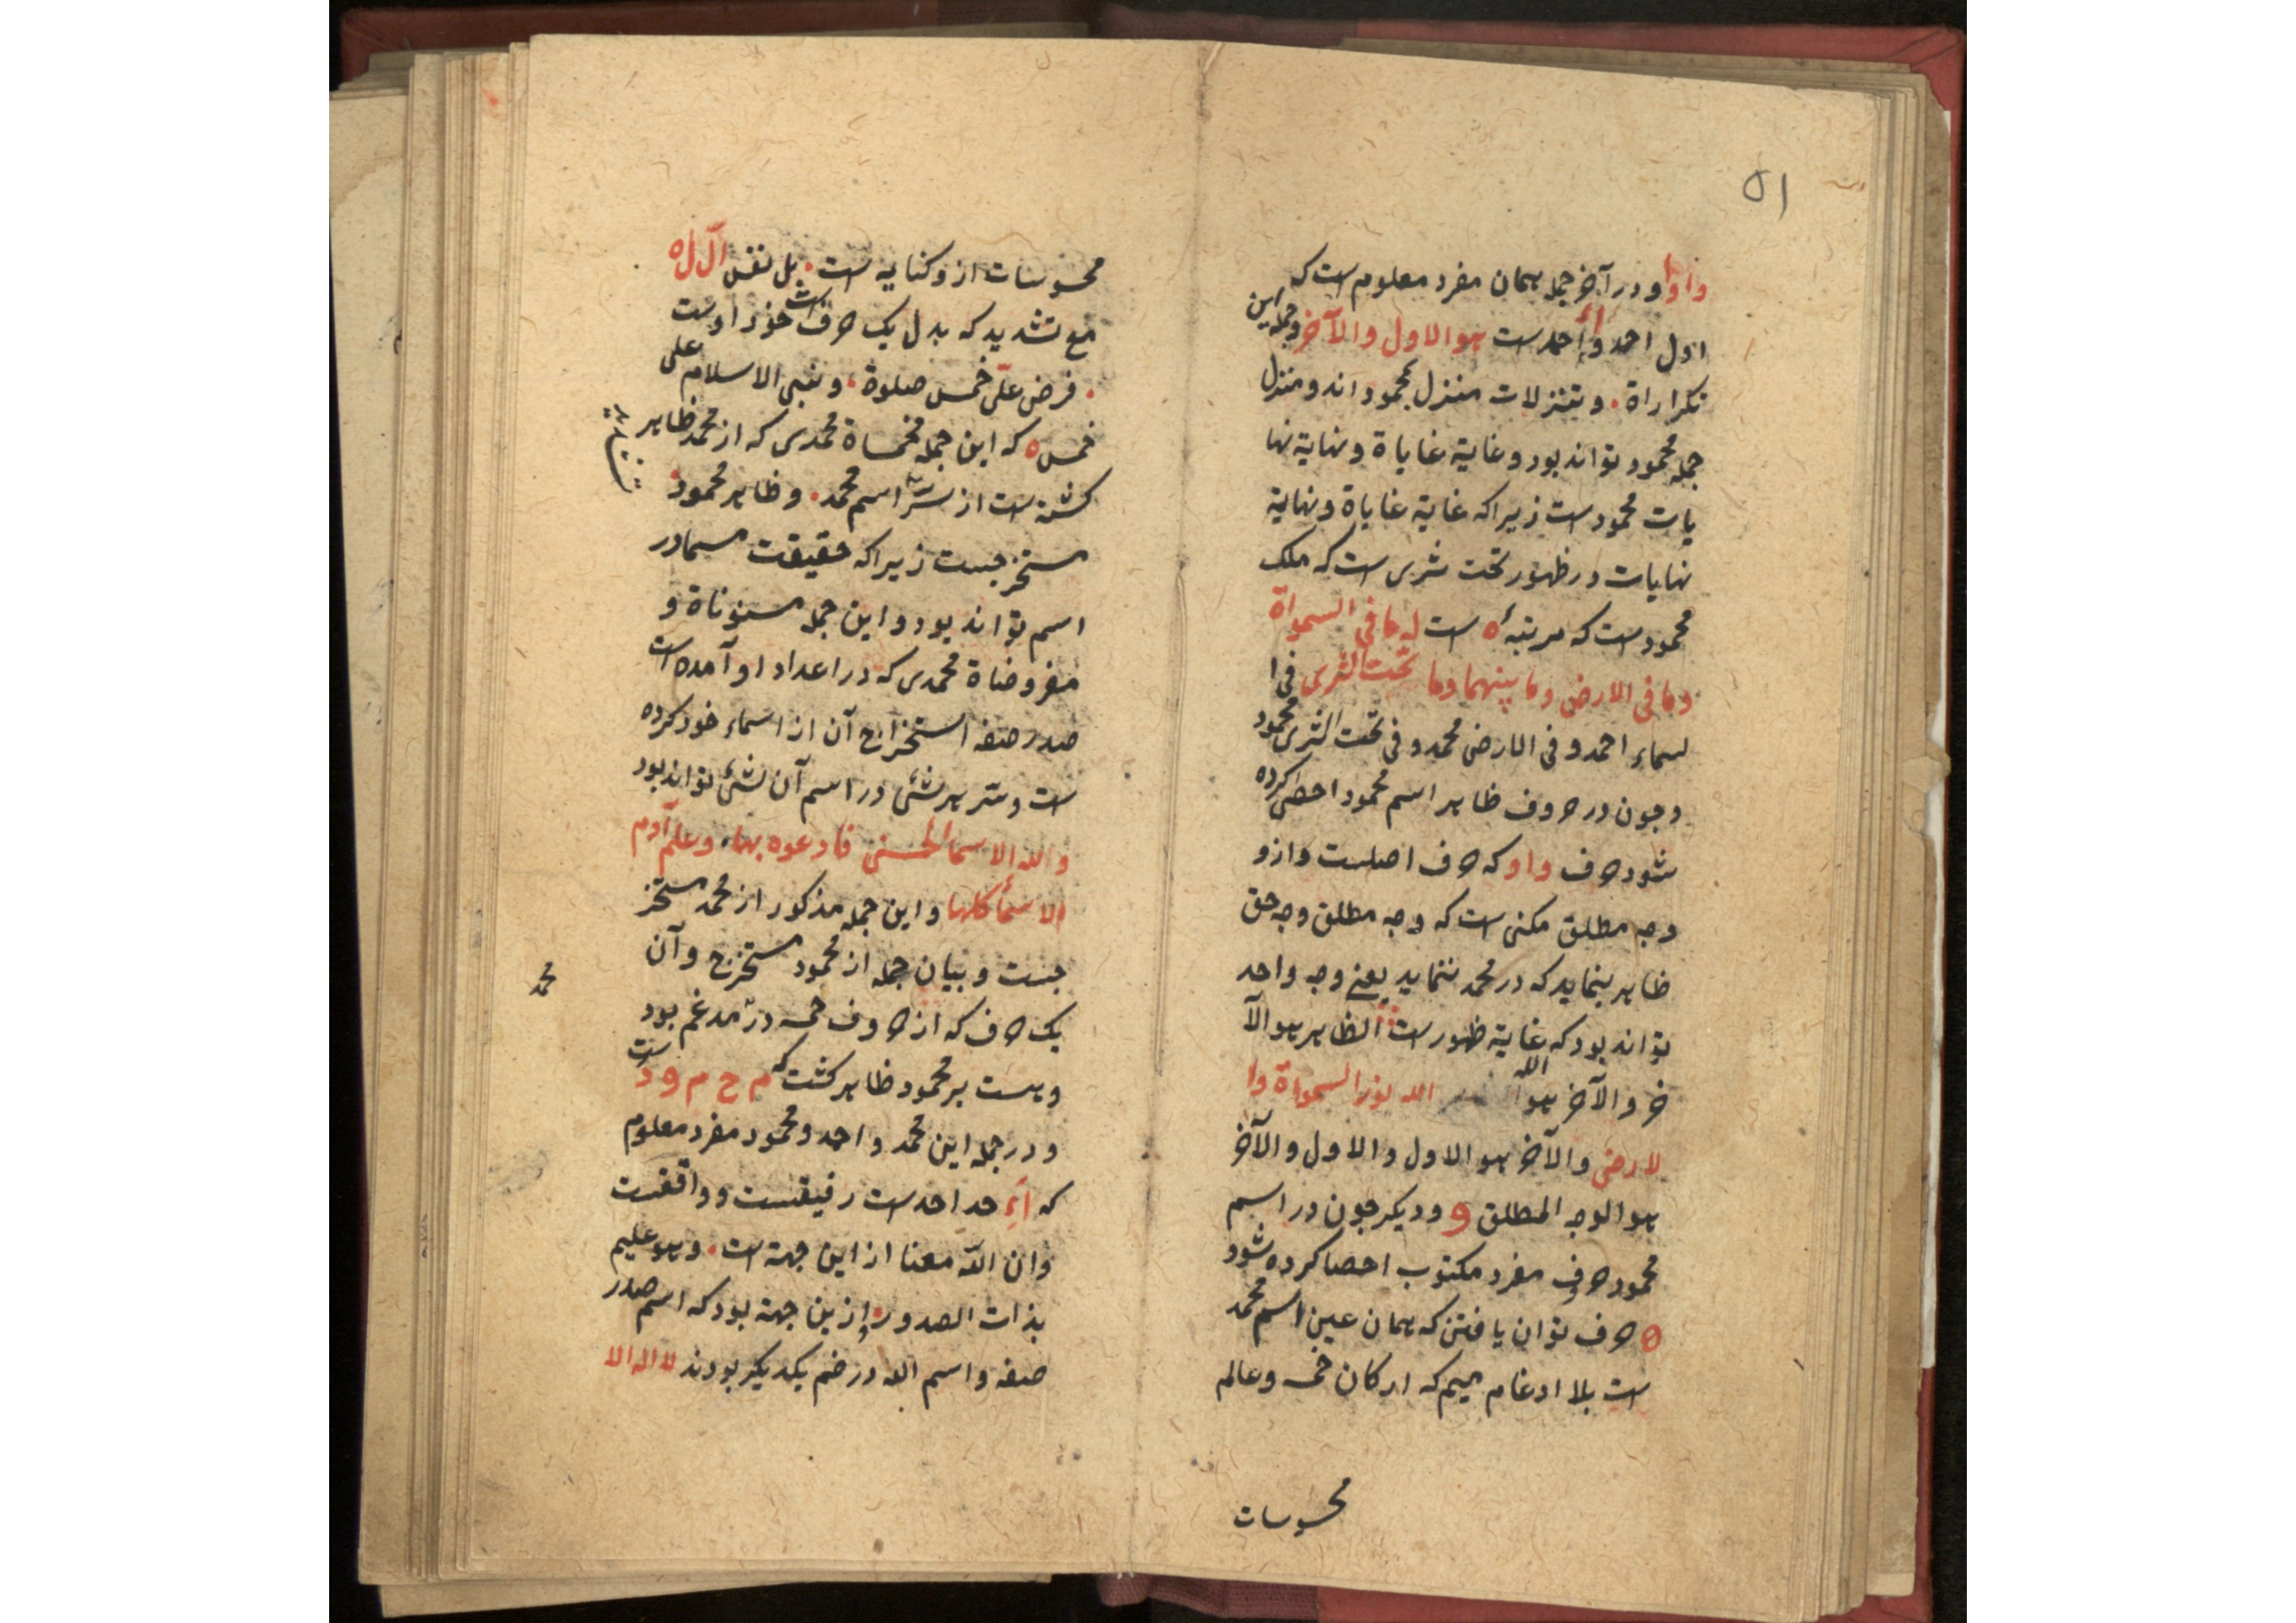 ۵۱
واوا و در آخر جمله همان مفرد معلوم است که
اول احد و احد است هو الاول والآخر و جمله این
تکراراة . و تنزلات منزل محمود اند و منزل
جمله محمود تواند بود و غایة غایاة و نهایة نها
یات محمود است زیرا که غایة غایاة و نهایة
نهایات در ظهور تحت ثری است که ملک
محمود است که مرتبه ه است له ما فی السمواة
وما فی الارض وما بینهما وما تحت الثری فی ا
لسماء احمد و فی الارض محمد و فی تحت الثری محمود
و جون در حروف ظاهر اسم محمود احصی کرده
شود حرف واو که حرف اصلست و ازو
وجه مطلق مکنی است که وجه مطلق وجه حق
ظاهر بنماید که در محمد ننماید یعنی وجه واحد
تواند بود که غایة ظهور است الظاهر هو الآ
خر والآخر هو الله الله نور السمواة وا
لارض والآخر هو الاول والاول والآخر
هو الوجه المطلق و و دیکر جون در اسم
محمود حروف مفرد مکتوب احصا کرده شود
۵ حرف توان یافتن که همان عین اسم محمد
است بلا ادغام میم که ارکان خمسه و عالم
محسوسات
محسوسات ازو کنایه است . بل نفس ال ل ه
مع تشدید که بدل یک حرف است خود اوست
. فرض علی خمس صلوة . و بنی الاسلام علی
خمس ه که این جمله مخمساة محمدی که از محمد ظاهر
کشته است از سر اسم محمد . و ظاهر محمود .
مستخرجست زیرا که حقیقت مسما در
اسم تواند بود و این جمله مسنوناة و
مفروضاة محمدی که در اعداد او آمده است
صدر صفه استخراج آن از اسماء خود کرده
است و سر هر شئ در اسم آن شئ تواند بود
ولله الاسما الحسنی فادعوه بها . وعلم آدم
الاسماء کلها و این جمله مذکور از محمد مستخر
جست و بیان جمله از محمود مستخرج و آن
یک حرف که از حروف خمسه درو مدغم بود
محمد
و هست بر محمود ظاهر کشت که م ح م و د ست
و در جمله این محمد و احمد و محمود مفرد معلوم
که ا حد احد است رفیقست و واقفست
وان الله معنا از این جهة است . و هو علیم
بذات الصدور . ازین جهة بود که اسم صدر
صفه و اسم الله در ضم یکدیکر بودند لا اله الا